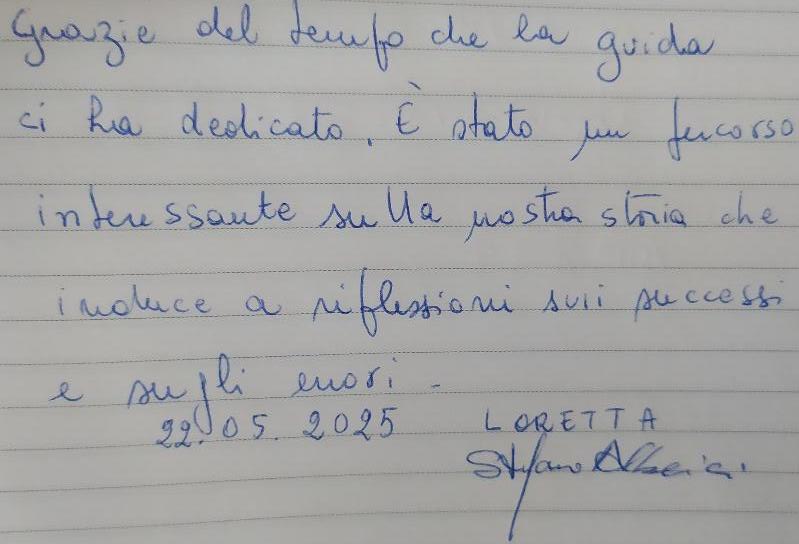 Grazie del tempo che la guida
ci ha dedicato. È stato un percorso
interessante sulla nostra storia che
induce a riflessioni sui successi
e sugli errori -
22.05.2025 LORETTA
Stefano